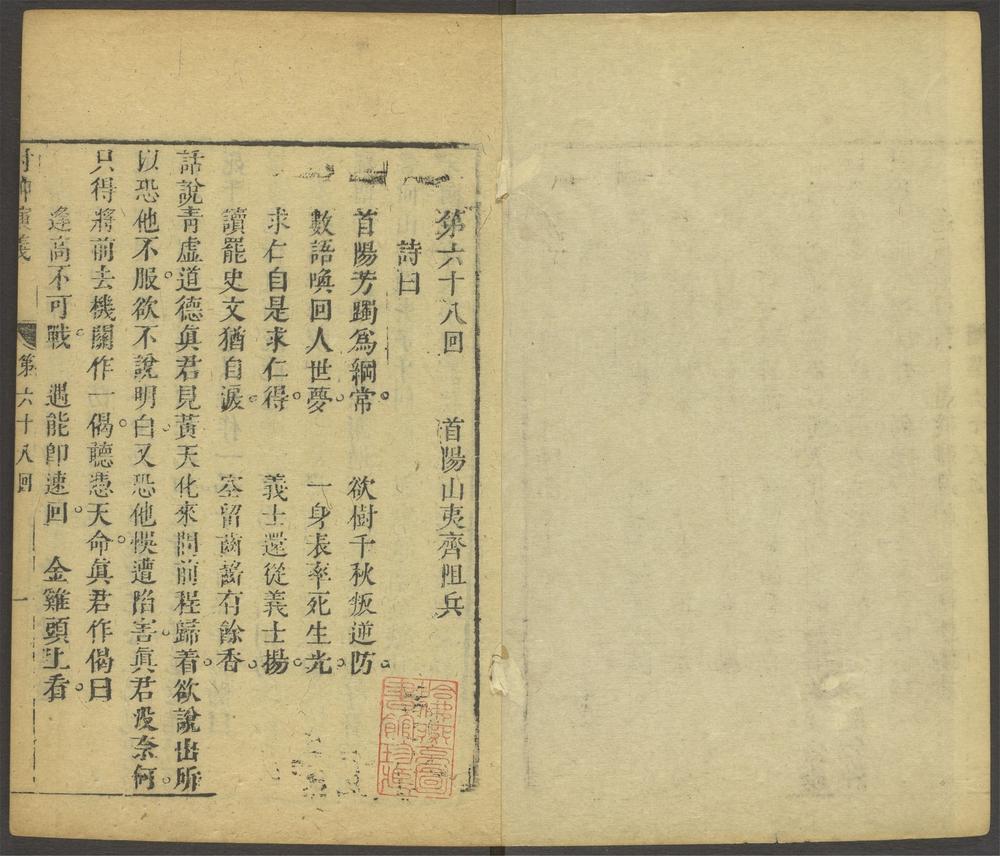 第六十八回　首陽山夷齊阻兵
詩曰
首陽芳躅爲綱常。　欲樹千秋叛逆防。
數語喚回人世夢。　一身表率死生光。
求仁自是求仁得。　義士還從義士揚。
讀罷史文猶自淚。　空留齒頰有餘香。
話說青虛道德眞君見黃天化來問前程歸着。欲說出所
以恐他不服。欲不說明白。又恐他悞遭陷害。眞君沒奈何。
只得將前去機關作一偈。聽憑天命。眞君作偈曰
逢高不可戰。　遇能卽速回。　金雞頭上看。
封神演義　第六十八回　一
哈佛燕京圖書館珍藏